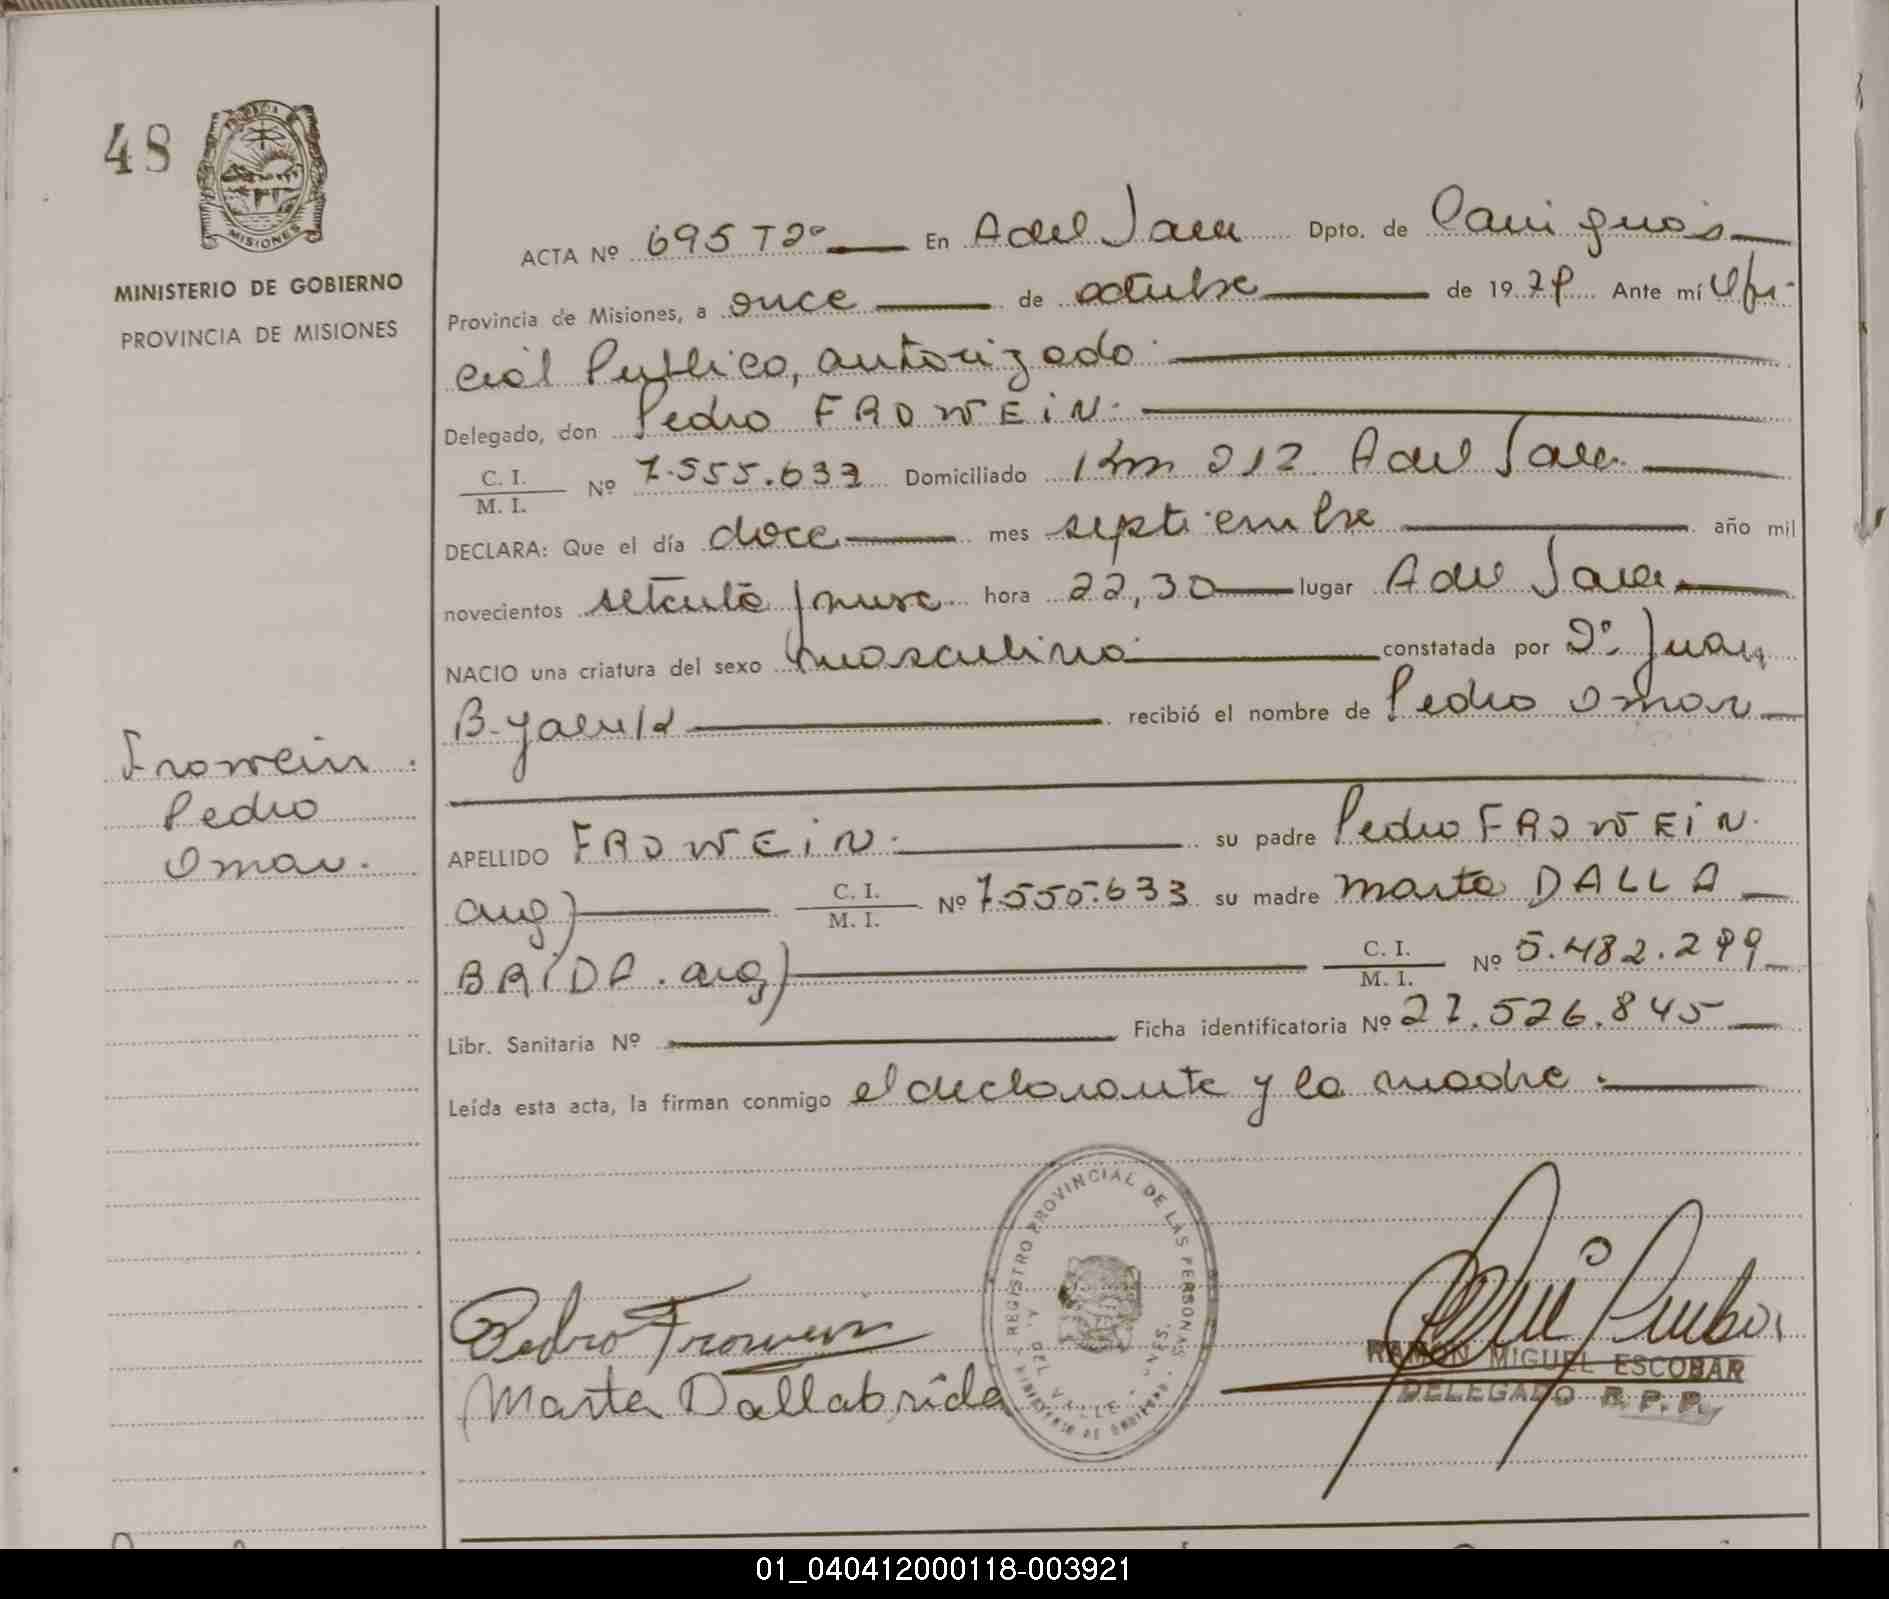 48
MISIONES
MINISTERIO DE GOBIERNO
PROVINCIA DE MISIONES
Frowein.
Pedro
Omar.
ACTA Nº 695 Tº En Adel Valle Dpto. de Cainguás
Provincia de Misiones, a once de octubre de 1979 Ante mí Ofi-
cial Publico, autorizado.
Delegado, don Pedro FROWEiN.
C. I. / M. I. Nº 7.555.633 Domiciliado Km 212 Adel Valle
DECLARA: Que el día doce mes septiembre año mil
novecientos setenta y nueve hora 22,30 lugar Adel Valle
NACIO una criatura del sexo masculino constatada por Dº. Juan
B. recibió el nombre de Pedro Omar
APELLIDO FROWEiN. su padre Pedro FROWEiN.
arg) C. I. / M. I. Nº 7.555.633 su madre Marta DALLA
BRiDA. arg) C. I. / M. I. Nº 5.482.299
Libr. Sanitaria Nº Ficha identificatoria Nº 27.526.845
Leída esta acta, la firman conmigo el declarante y la madre.
REGISTRO PROVINCIAL DE LAS PERSONAS
A. DEL VALLE
MINISTERIO DE GOBIERNO
Pedro Frowein
Marta Dallabrida
RAMON MIGUEL ESCOBAR
DELEGADO R. P. P.
01_040412000118-003921